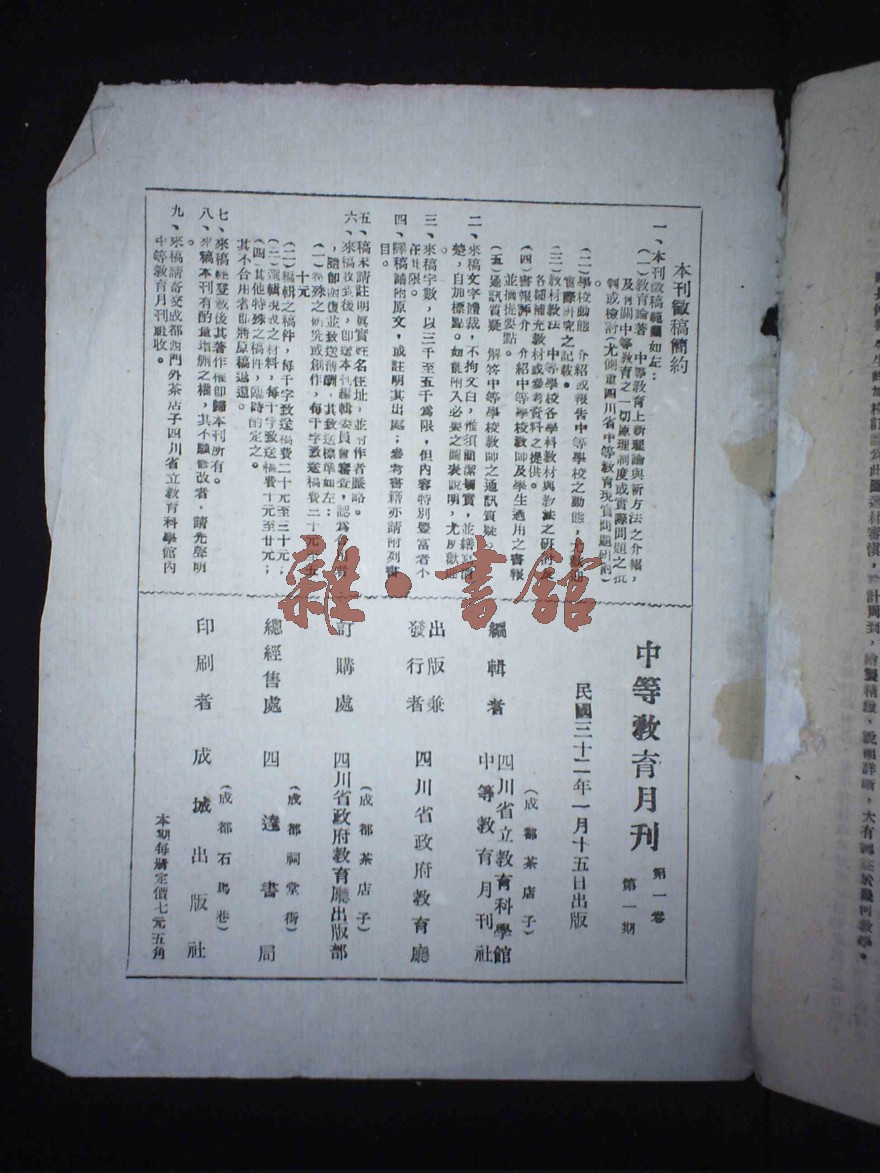 本刊徵稿簡約
一、本刊徵稿範圍如左：
(一)教育論著 中等教育上新理論與新方法之介紹，
及有關中等教育之一切原理制度或實際問題之批
判或檢討(尤側重四川省中等教育現實問題之檢討)
。
(二)學校動態 介紹或報告中等學校之動態，
實際研究之記載。
(三)教材教法 中等學校各學科教材與教法之研討及
各種補充教材或參考資料之提供。
(四)書報評介 介紹中等學校教師及學生適用之書報
並摘提要點。
(五)通訊質疑 解答中等學校教師之通訊質疑。
二、來稿文字體裁，不拘文白，惟須簡潔切實，並繕寫清
楚，自加標點。如能附入必要之圖表說明，尤所歡迎
三、來稿字數，以三千至五千為限，但內容特別豐富者不
在此限。
四、譯稿請附原文，或註明其出處；參考書籍亦請附列書
目。
五、稿末請註明真實姓名住址，並附作者履略。
六、來稿收到後，即送本刊編輯委員會審查，認為合用者
，隨即函復並致送薄酬，其致送標準如左：
(一)特殊之研究或創作，每千字致送稿費二十元至五
十元
(二)編輯之稿件，每千字致送稿費二十元至三十元；
(三)選輯現成之材料，每千字致送稿費十元至廿元；
(四)其他特殊之稿件，臨時酌定之。
其不合用者即將原稿退還。
七、來稿經登載後其著作權即歸本刊所有。
八、來稿本刊有酌量增刪之權，其不願修改者，請先聲明
。
九、來稿請寄交成都西門外茶店子四川省立教育科學館內
中等教育月刊社收。
中等教育月刊 第一卷 第一期
民國三十二年一月十五日出版
編輯者 四川省立教育科學館 中等教育月刊社
(成都茶店子)
出版兼發行者 四川省政府教育廳
訂購處 四川省政府教育廳出版部
(成都茶店子)
總經售處 四達書局
(成都祠堂街)
印刷者 成城出版社
(成都石馬巷)
本期每冊定價七元五角
雜·書館